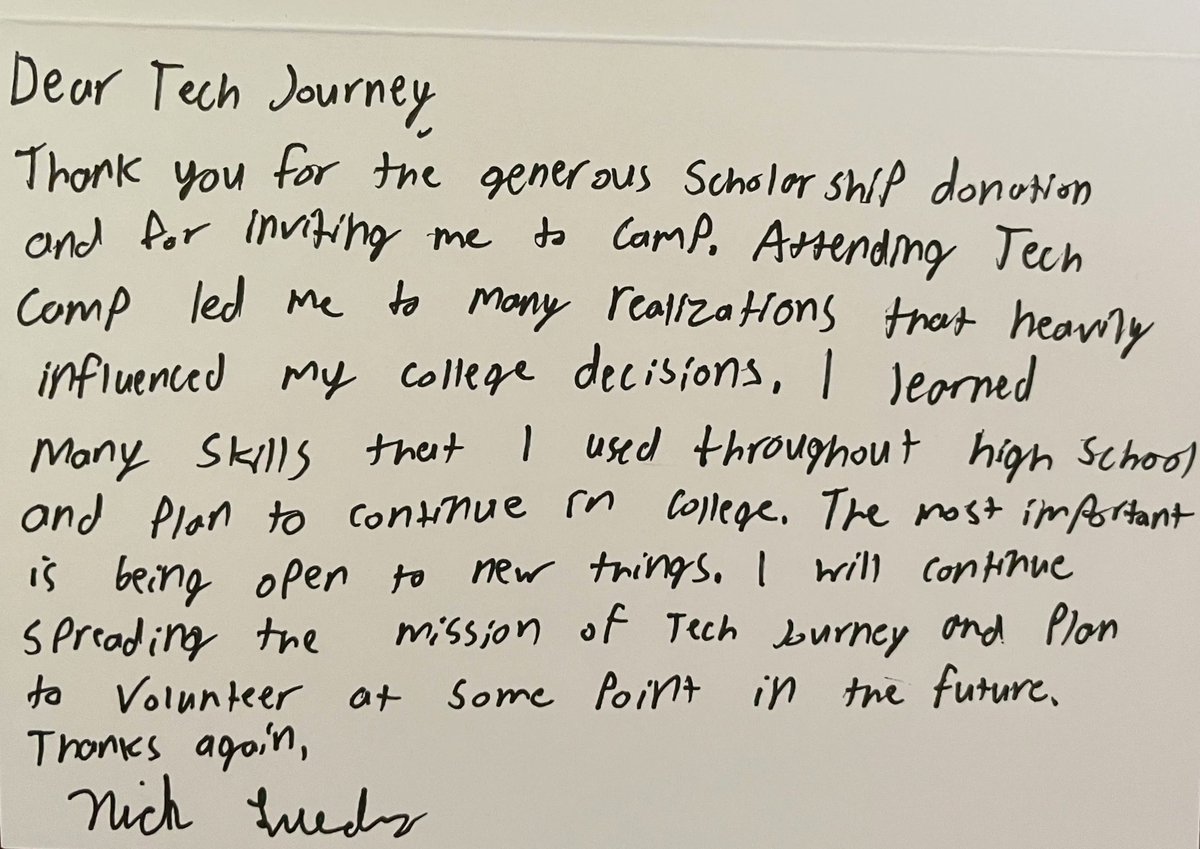 Dear Tech Journey,
Thank you for the generous Scholarship donation
and for inviting me to camp. Attending Tech
Camp led me to many realizations that heavily
influenced my college decisions. I learned
many skills that I used throughout high school
and plan to continue in college. The most important
is being open to new things. I will continue
spreading the mission of Tech Journey and plan
to volunteer at some point in the future.
Thanks again,
Nick